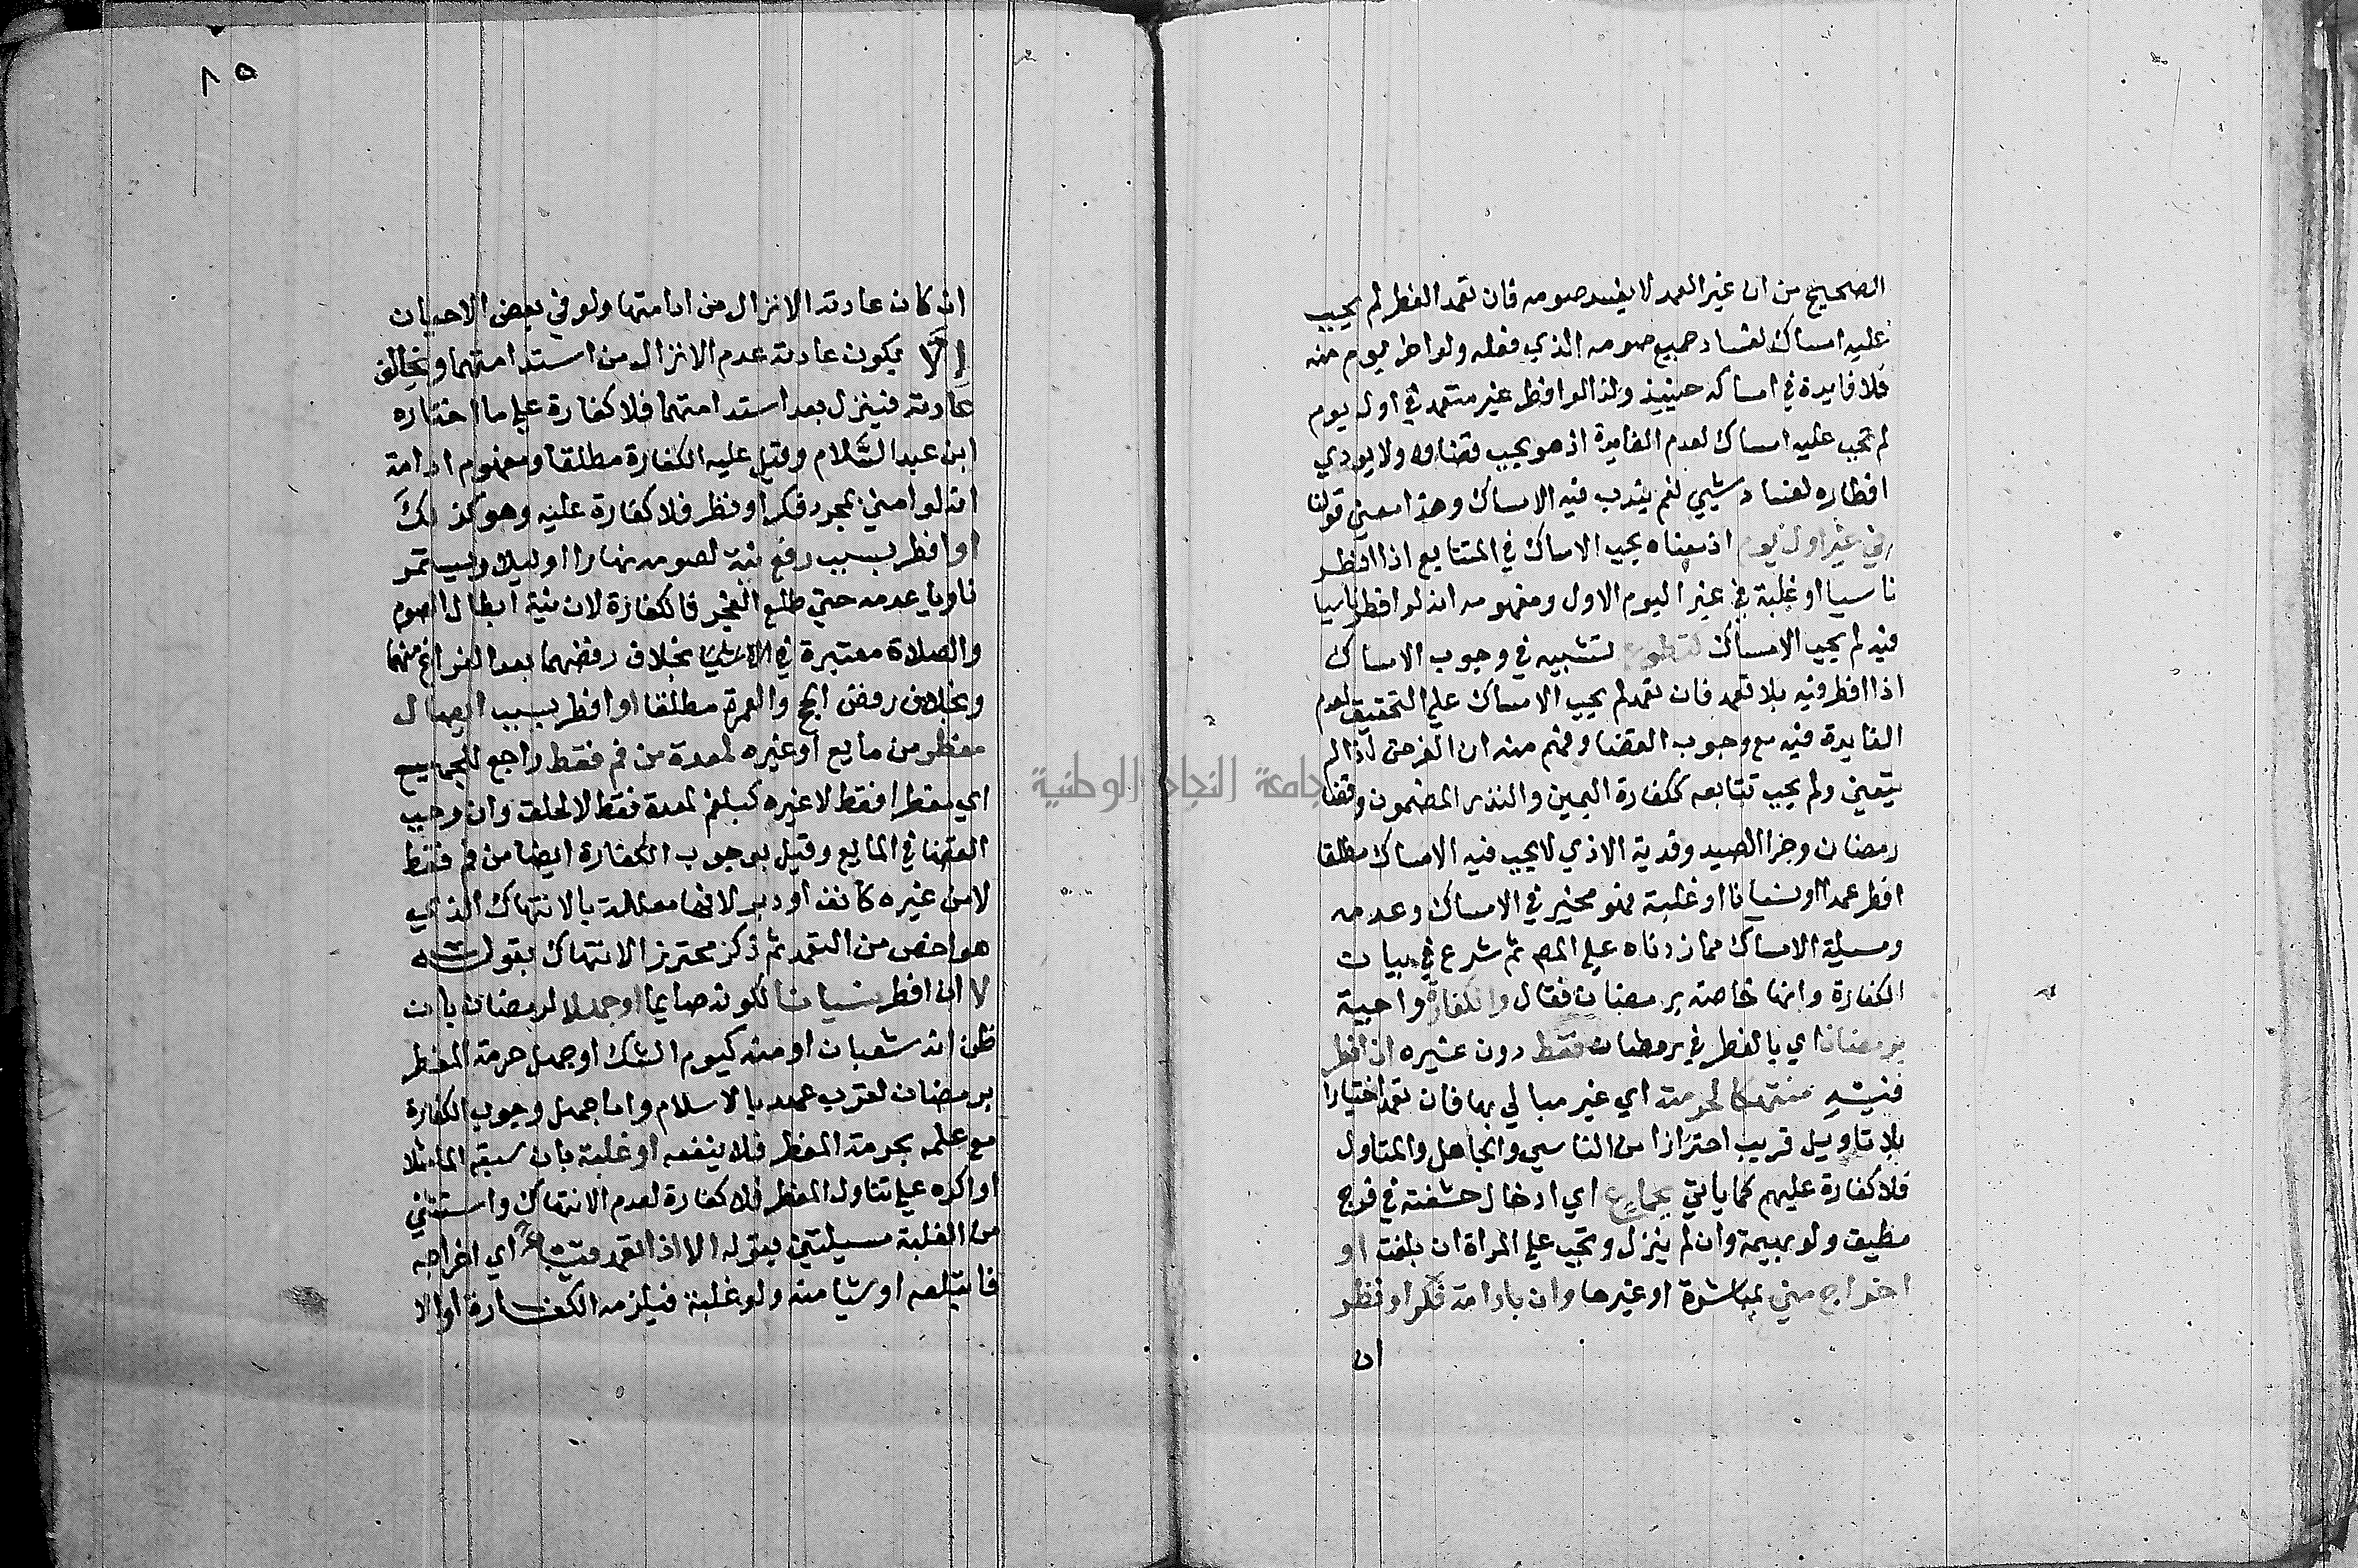 الصحيح من ان غير العمد لا يفسد صومه فان تعمد الفطر لم يجب
عليه امساك لفساد جميع صومه الذي فعله ولو اخر يوم منه
فلا فايدة في امساكه حينيذ وكذا لو افطر غير متعمد في اول يوم
لم يجب عليه امساك لعدم الفايدة اذ هو يجب قضاوه ولا يودي
افطاره لفساد شيي نعم يندب فيه الامساك وهذا معني قولنا
في غير اول يوم اذ معناه يجب الامساك في المتتابع اذا افطر
ناسيا او غلبة في غير اليوم الاول ومفهومه انه لو افطر ناسيا
فيه لم يجب الامساك كتطوع تشبيه في وجوب الامساك
اذا افطر فيه بلا تعمد فان تعمد لم يجب الامساك علي التحقيق لعدم
الفايدة فيه مع وجوب القضا وفهم منه ان الفرض اذا لم
يتعين ولم يجب تتابعه ككفارة اليمين والنذر المضمون وقضا
رمضان وجزا الصيد وفدية الاذي لا يجب فيه الامساك مطلقا
افطر عمدا او نسيانا او غلبة فهو مخير في الامساك وعدمه
ومسيلة الامساك مما زدناه علي المص ثم شرع في بيان
الكفارة وانها خاصة برمضان فقال والكفارة واجبة
برمضان اي بالفطر في رمضان فقط دون غيره ان افطر
فيه منتهكا لحرمته اي غير مبالي بها فان تعمد اختيارا
بلا تاويل قريب احترازا من الناسي والجاهل والمتاول
فلا كفارة عليهم كما ياتي بجماع اي ادخال حشفته في فرج
مطيق ولو بهيمة وان لم ينزل وتجب علي المراة ان بلغت او
اخراج مني بمباشرة او غيرها وان بادامة فكر او نظر
ان
٨٥
ان كان عادته الانزال من ادامتها ولو في بعض الاحيان
الا يكون عادته عدم الانزال من استدامتهما ويخالف
عادته فينزل بعد استدامتهما فلا كفارة علي ما اختاره
ابن عبد السلام وقيل عليه الكفارة مطلقا ومفهوم ادامة
انه لو امني بمجرد فكر او نظر فلا كفارة عليه وهو كذلك
او افطر بسبب رفع نية لصومه نهارا او ليلا ويستمر
ناويا عدمه حتي طلع الفجر فالكفارة لان نية ابطال الصوم
والصلاة معتبرة في الاثنا بخلاف رفضهما بعد الفراغ منهما
وبخلاف رفض الحج والعمرة مطلقا او افطر بسبب ايصال
مفطر من مايع او غيره لمعدة من فم فقط راجع للجميع
اي مفطر فقط لا غيره كبلغم لمعدة فقط لا لحلق وان وجب
القضا في المايع وقيل بوجوب الكفارة ايضا من فم فقط
لا من غيره كانف او دبر لانها معللة بالانتهاك الذي
هو اخص من التعمد ثم ذكر محترز الانتهاك بقوله
لا ان افطر نسيانا لكونه صايما او جهلا لرمضان بان
ظن انه شعبان او منه كيوم الشك او جهل حرمة الفطر
برمضان لقرب عهده بالاسلام واما جهل وجوب الكفارة
مع علمه بحرمة الفطر فلا ينفعه او غلبة بان سبقه الما مثلا
او اكره علي تناول المفطر فلا كفارة لعدم الانتهاك واستثني
من الغلبة مسيلتين بقوله الا اذا تعمد قيا اي اخراجه
فابتلعه او شيا منه ولو غلبة فيلزمه الكفارة او الا
جامعة النجاح الوطنية